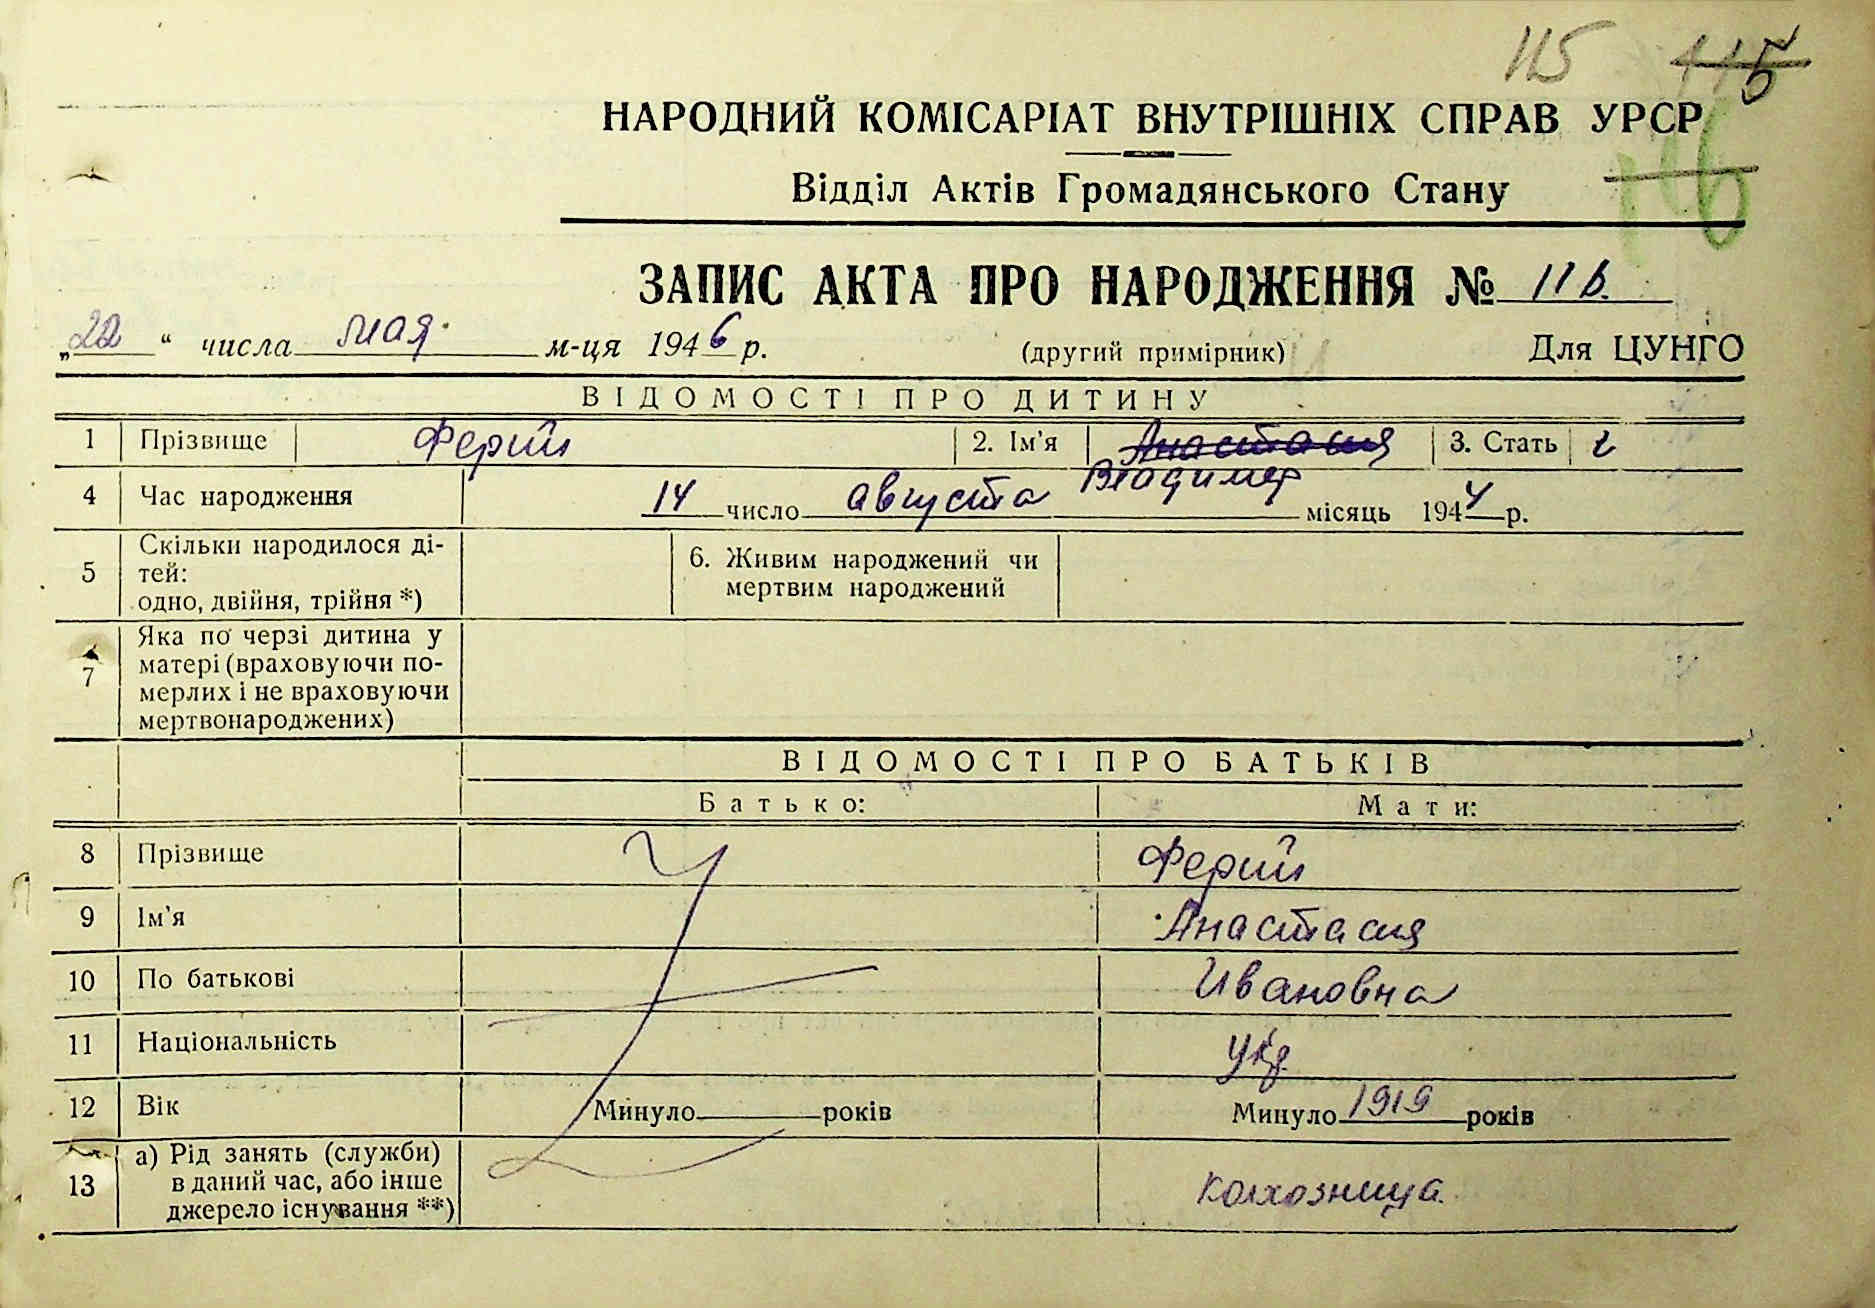 115 115
НАРОДНИЙ КОМІСАРІАТ ВНУТРІШНІХ СПРАВ УРСР
116
Відділ Актів Громадянського Стану
ЗАПИС АКТА ПРО НАРОДЖЕННЯ № 116.
„22“ числа мая м-ця 1946 р. (другий примірник) Для ЦУНГО
ВІДОМОСТІ ПРО ДИТИНУ
1 Прізвище Ферий 2. Ім'я Анастасия 3. Стать
Владимер
4 Час народження 14 число августа місяць 1944 р.
5 Скільки народилося ді-
тей:
одно, двійня, трійня *)
6. Живим народжений чи
мертвим народжений
7 Яка по черзі дитина у
матері (враховуючи по-
мерлих і не враховуючи
мертвонароджених)
ВІДОМОСТІ ПРО БАТЬКІВ
Батько: Мати:
8 Прізвище Ферий
9 Ім'я Анастасия
10 По батькові Ивановна
11 Національність Укр
12 Вік Минуло років Минуло 1919 років
13 а) Рід занять (служби)
в даний час, або інше
джерело існування **)
колхозница